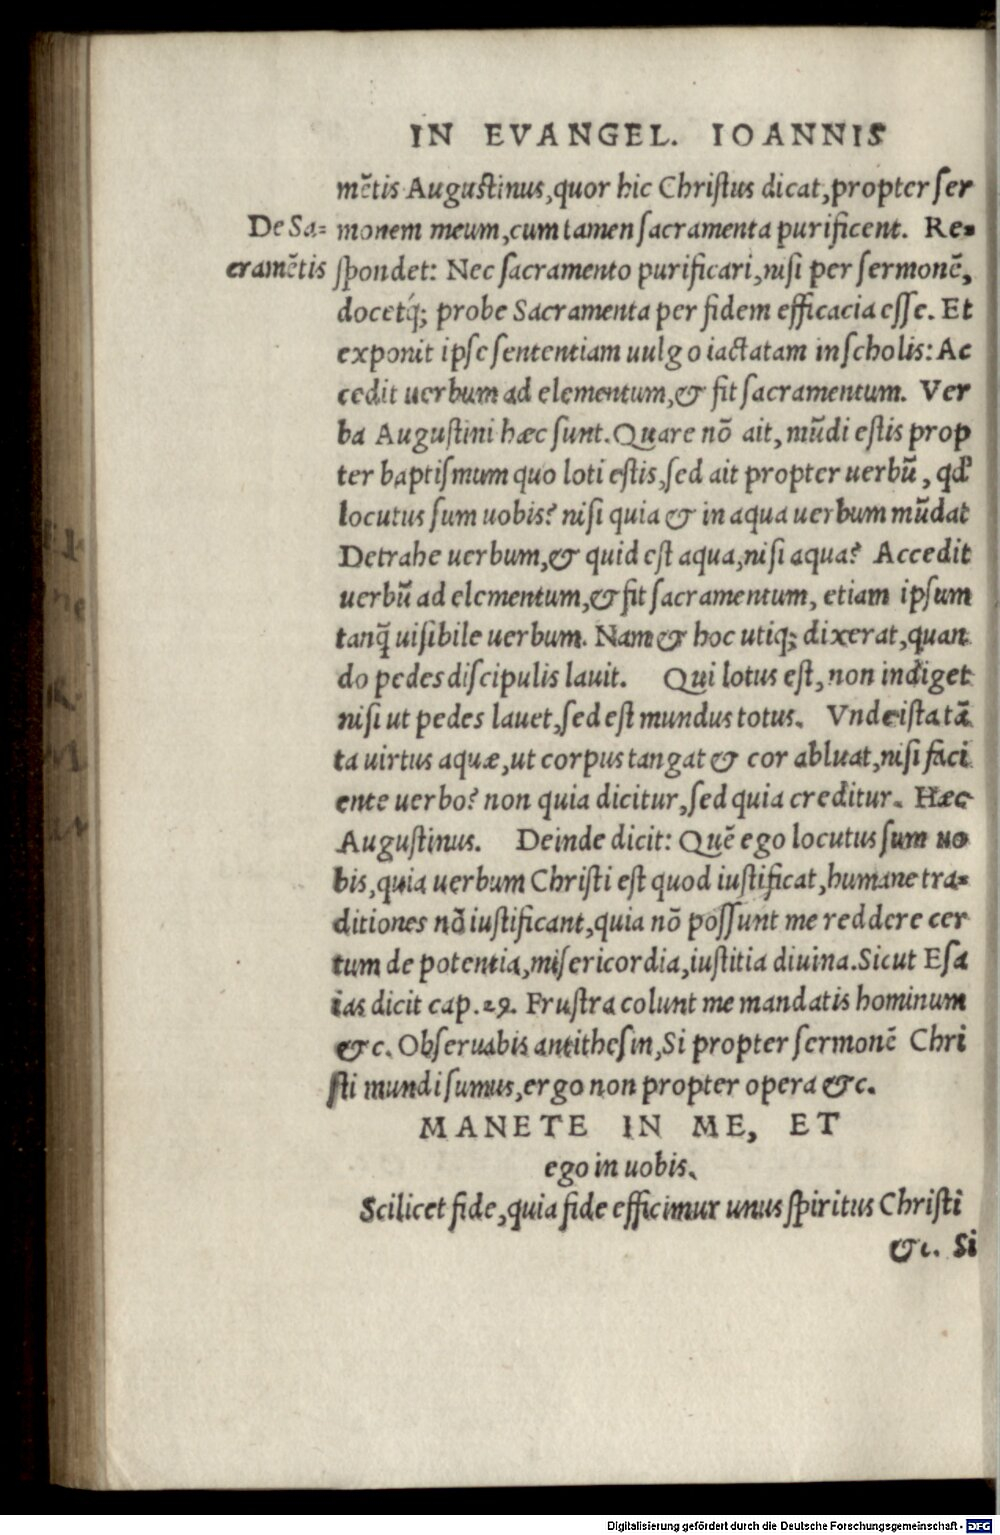 IN EVANGEL. IOANNIS
mẽtis Augustinus, quor hic Christus dicat, propter ser
De Sa= monem meum, cum tamen sacramenta purificent. Re=
cramẽtis spondet: Nec sacramento purificari, nisi per sermonẽ,
docetq́; probe Sacramenta per fidem efficacia esse. Et
exponit ipse sententiam uulgo iactatam in scholis: Ac
cedit uerbum ad elementum, & fit sacramentum. Ver
ba Augustini hæc sunt. Quare nõ ait, mũdi estis prop
ter baptismum quo loti estis, sed ait propter uerbũ, qđ
locutus sum uobis? nisi quia & in aqua uerbum mũdat
Detrahe uerbum, & quid est aqua, nisi aqua? Accedit
uerbũ ad elementum, & fit sacramentum, etiam ipsum
tanq̃ uisibile uerbum. Nam & hoc utiq; dixerat, quan
do pedes discipulis lauit. Qui lotus est, non indiget
nisi ut pedes lauet, sed est mundus totus. Vnde ista tã
ta uirtus aquæ, ut corpus tangat & cor abluat, nisi faci
ente uerbo? non quia dicitur, sed quia creditur. Hæc
Augustinus. Deinde dicit: Quẽ ego locutus sum uo
bis, quia uerbum Christi est quod iustificat, humane tra=
ditiones nõ iustificant, quia nõ possunt me reddere cer
tum de potentia, misericordia, iustitia diuina. Sicut Esa
ias dicit cap. 29. Frustra colunt me mandatis hominum
&c. Obseruabis antithesin, Si propter sermonẽ Chri
sti mundi sumus, ergo non propter opera &c.
MANETE IN ME, ET
ego in uobis.
Scilicet fide, quia fide efficimur unus spiritus Christi
&c. Si
Digitalisierung gefördert durch die Deutsche Forschungsgemeinschaft - DFG